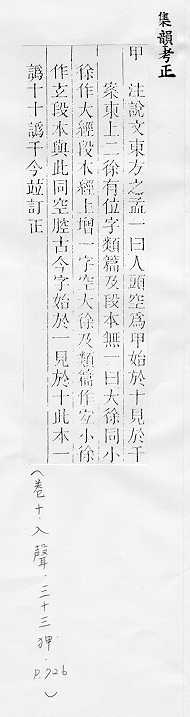 集韻考正
甲　注說文東方之孟一曰人頭空爲甲始於十見於千
案東上二徐有位字類篇及段本無一曰大徐同小
徐作大經段本經上增一字空大徐及類篇作宐小徐
作玄段本與此同空腔古今字始於一見於十此本一
譌十十譌千今竝訂正
(卷十.入聲.三十三狎.p.926)